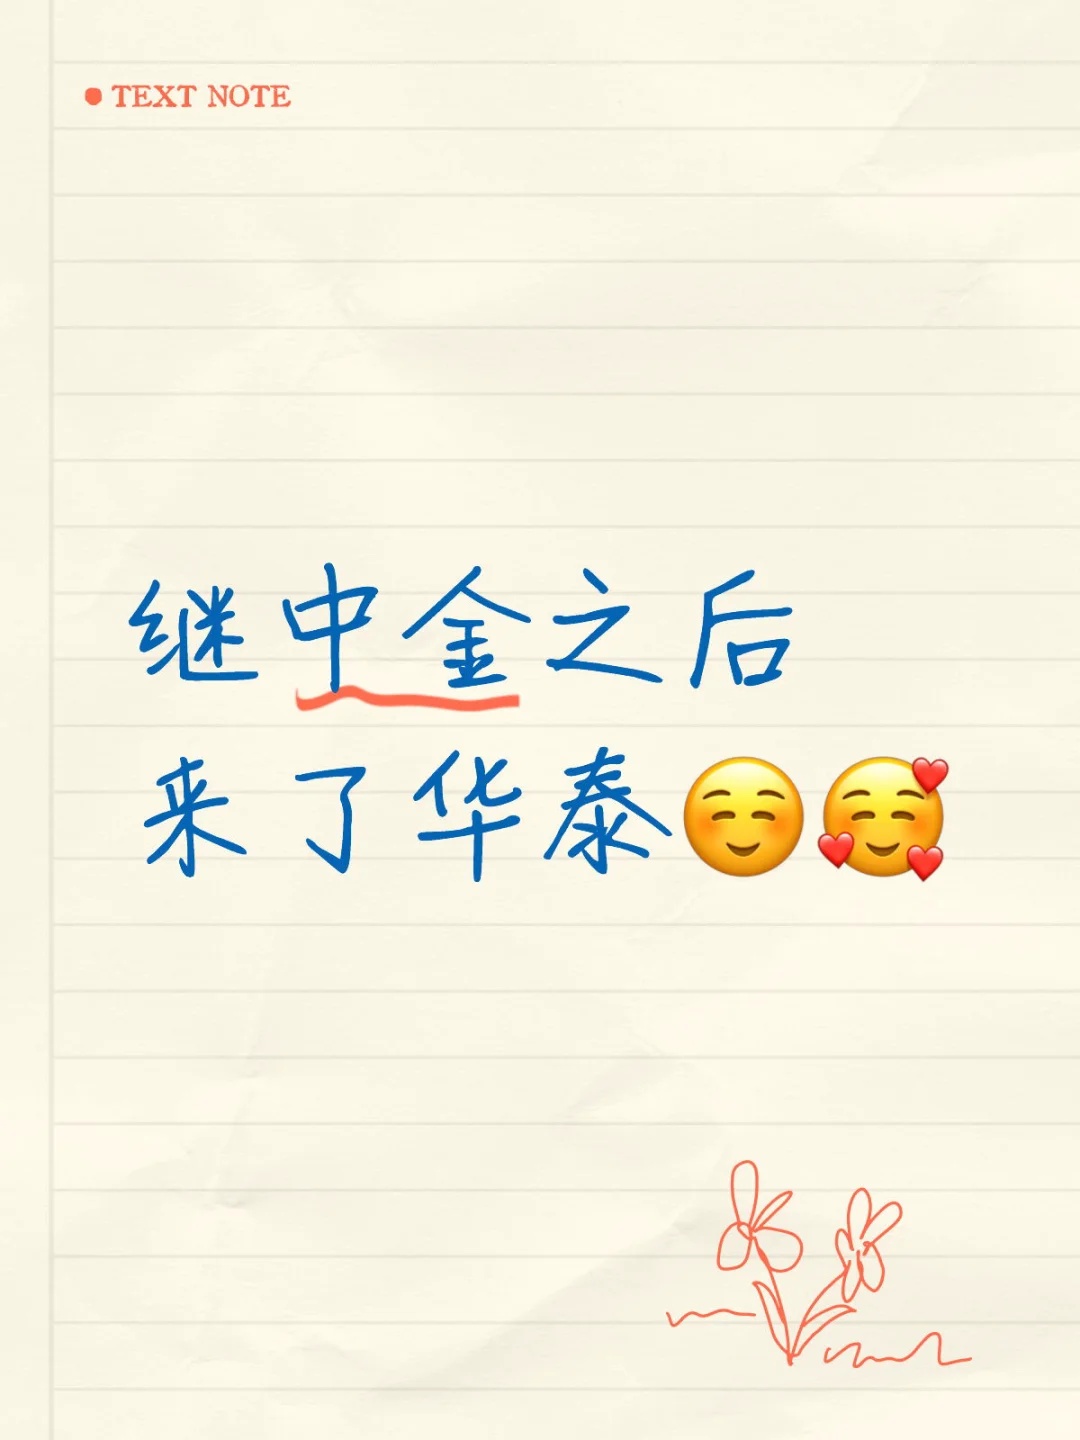 TEXT NOTE
继中金之后
来了华泰☺️🥰